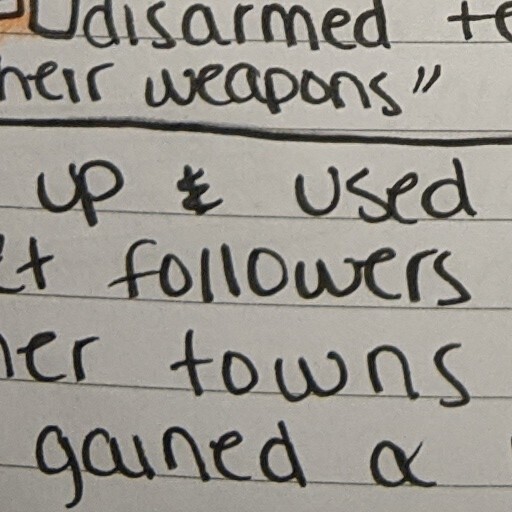 disarmed
weapons"
up & used
followers
towns
gained a